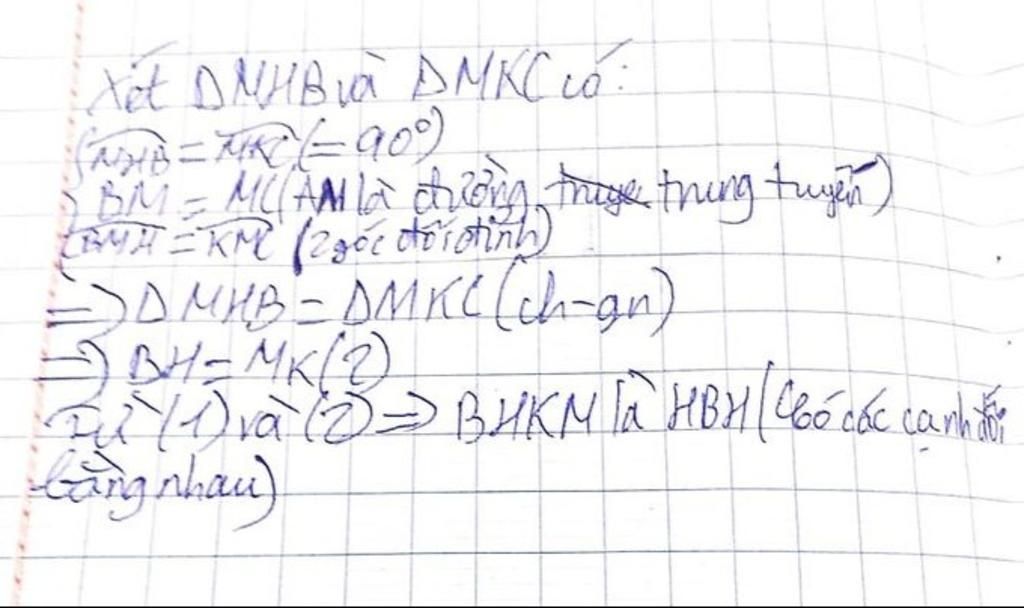 Xét ΔMHB và ΔMKC có:
{ MHB = MKC (= 90°)
BM = MC (AM là đường truye trung tuyến)
BMH = KMC (2 góc đối đỉnh)
=> ΔMHB = ΔMKC (ch-gn)
=> BH = MK (2)
Từ (1) và (2) => BHKM là HBH (có các cạnh đối
bằng nhau)